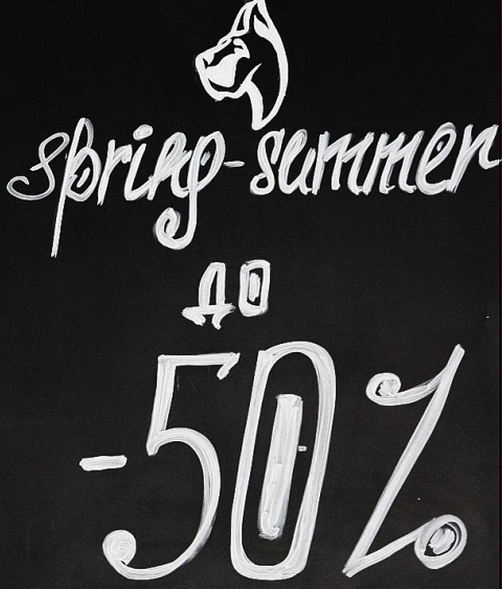 spring-summer
до
-50%